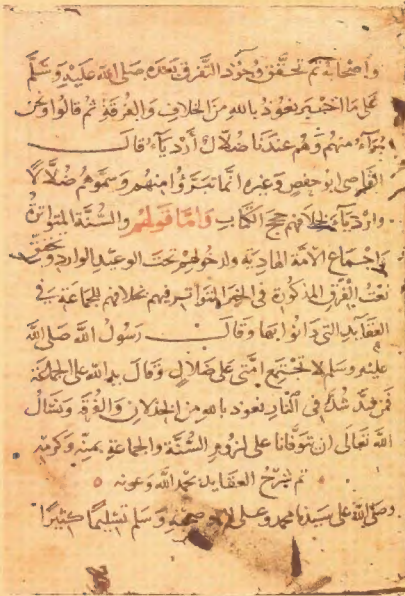 وأصحابه ثم تحقق وجود التفرق بعده صلى الله عليه وسلم
على ما أخبر نعوذ بالله من الخلاف والفرقة ثم قالوا ونحن
برآء منهم وهم عندنا ضلال أردياء قال
القاضي ابو حفص وغيره انما تبرؤا منهم وسموهم ضلالا
وأردياء لخلافهم حجج الكتاب واما قولهم والسنة المتواترة
وإجماع الأمة الهادية ولدخولهم تحت الوعيد الوارد
نعت الفرق المذكورة في الخبر المتواتر فيهم بخلافهم للجماعة في
العقايد التي دانوا بها وقال رسول الله صلى الله
عليه وسلم لا تجتمع امتي على ضلال وقال يد الله على الجماعة
فمن شذ شذ في النار نعوذ بالله من الخذلان والفرقة ونسال
الله تعالى ان يتوفانا على لزوم السنة والجماعة بمنه وكرمه
تم شرح العقايد بحمد الله وعونه
وصلى الله على سيدنا محمد وعلى اله وصحبه وسلم تسليما كثيرا